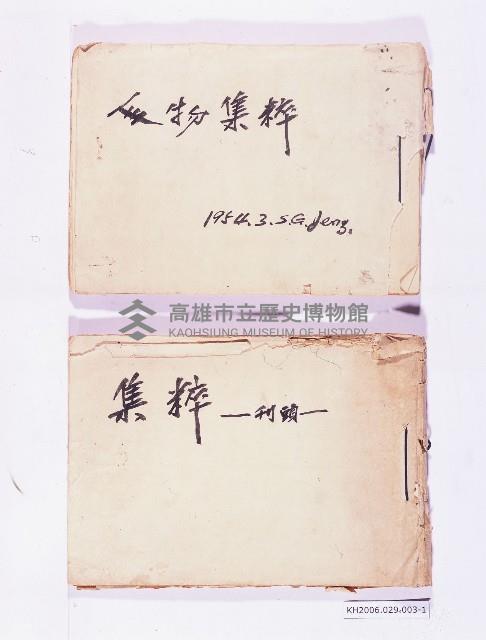 人物集粹
1954.3.S.G.Jeng.
高雄市立歷史博物館
KAOHSIUNG MUSEUM OF HISTORY
集粹 —刊頭—
KH2006.029.003-1